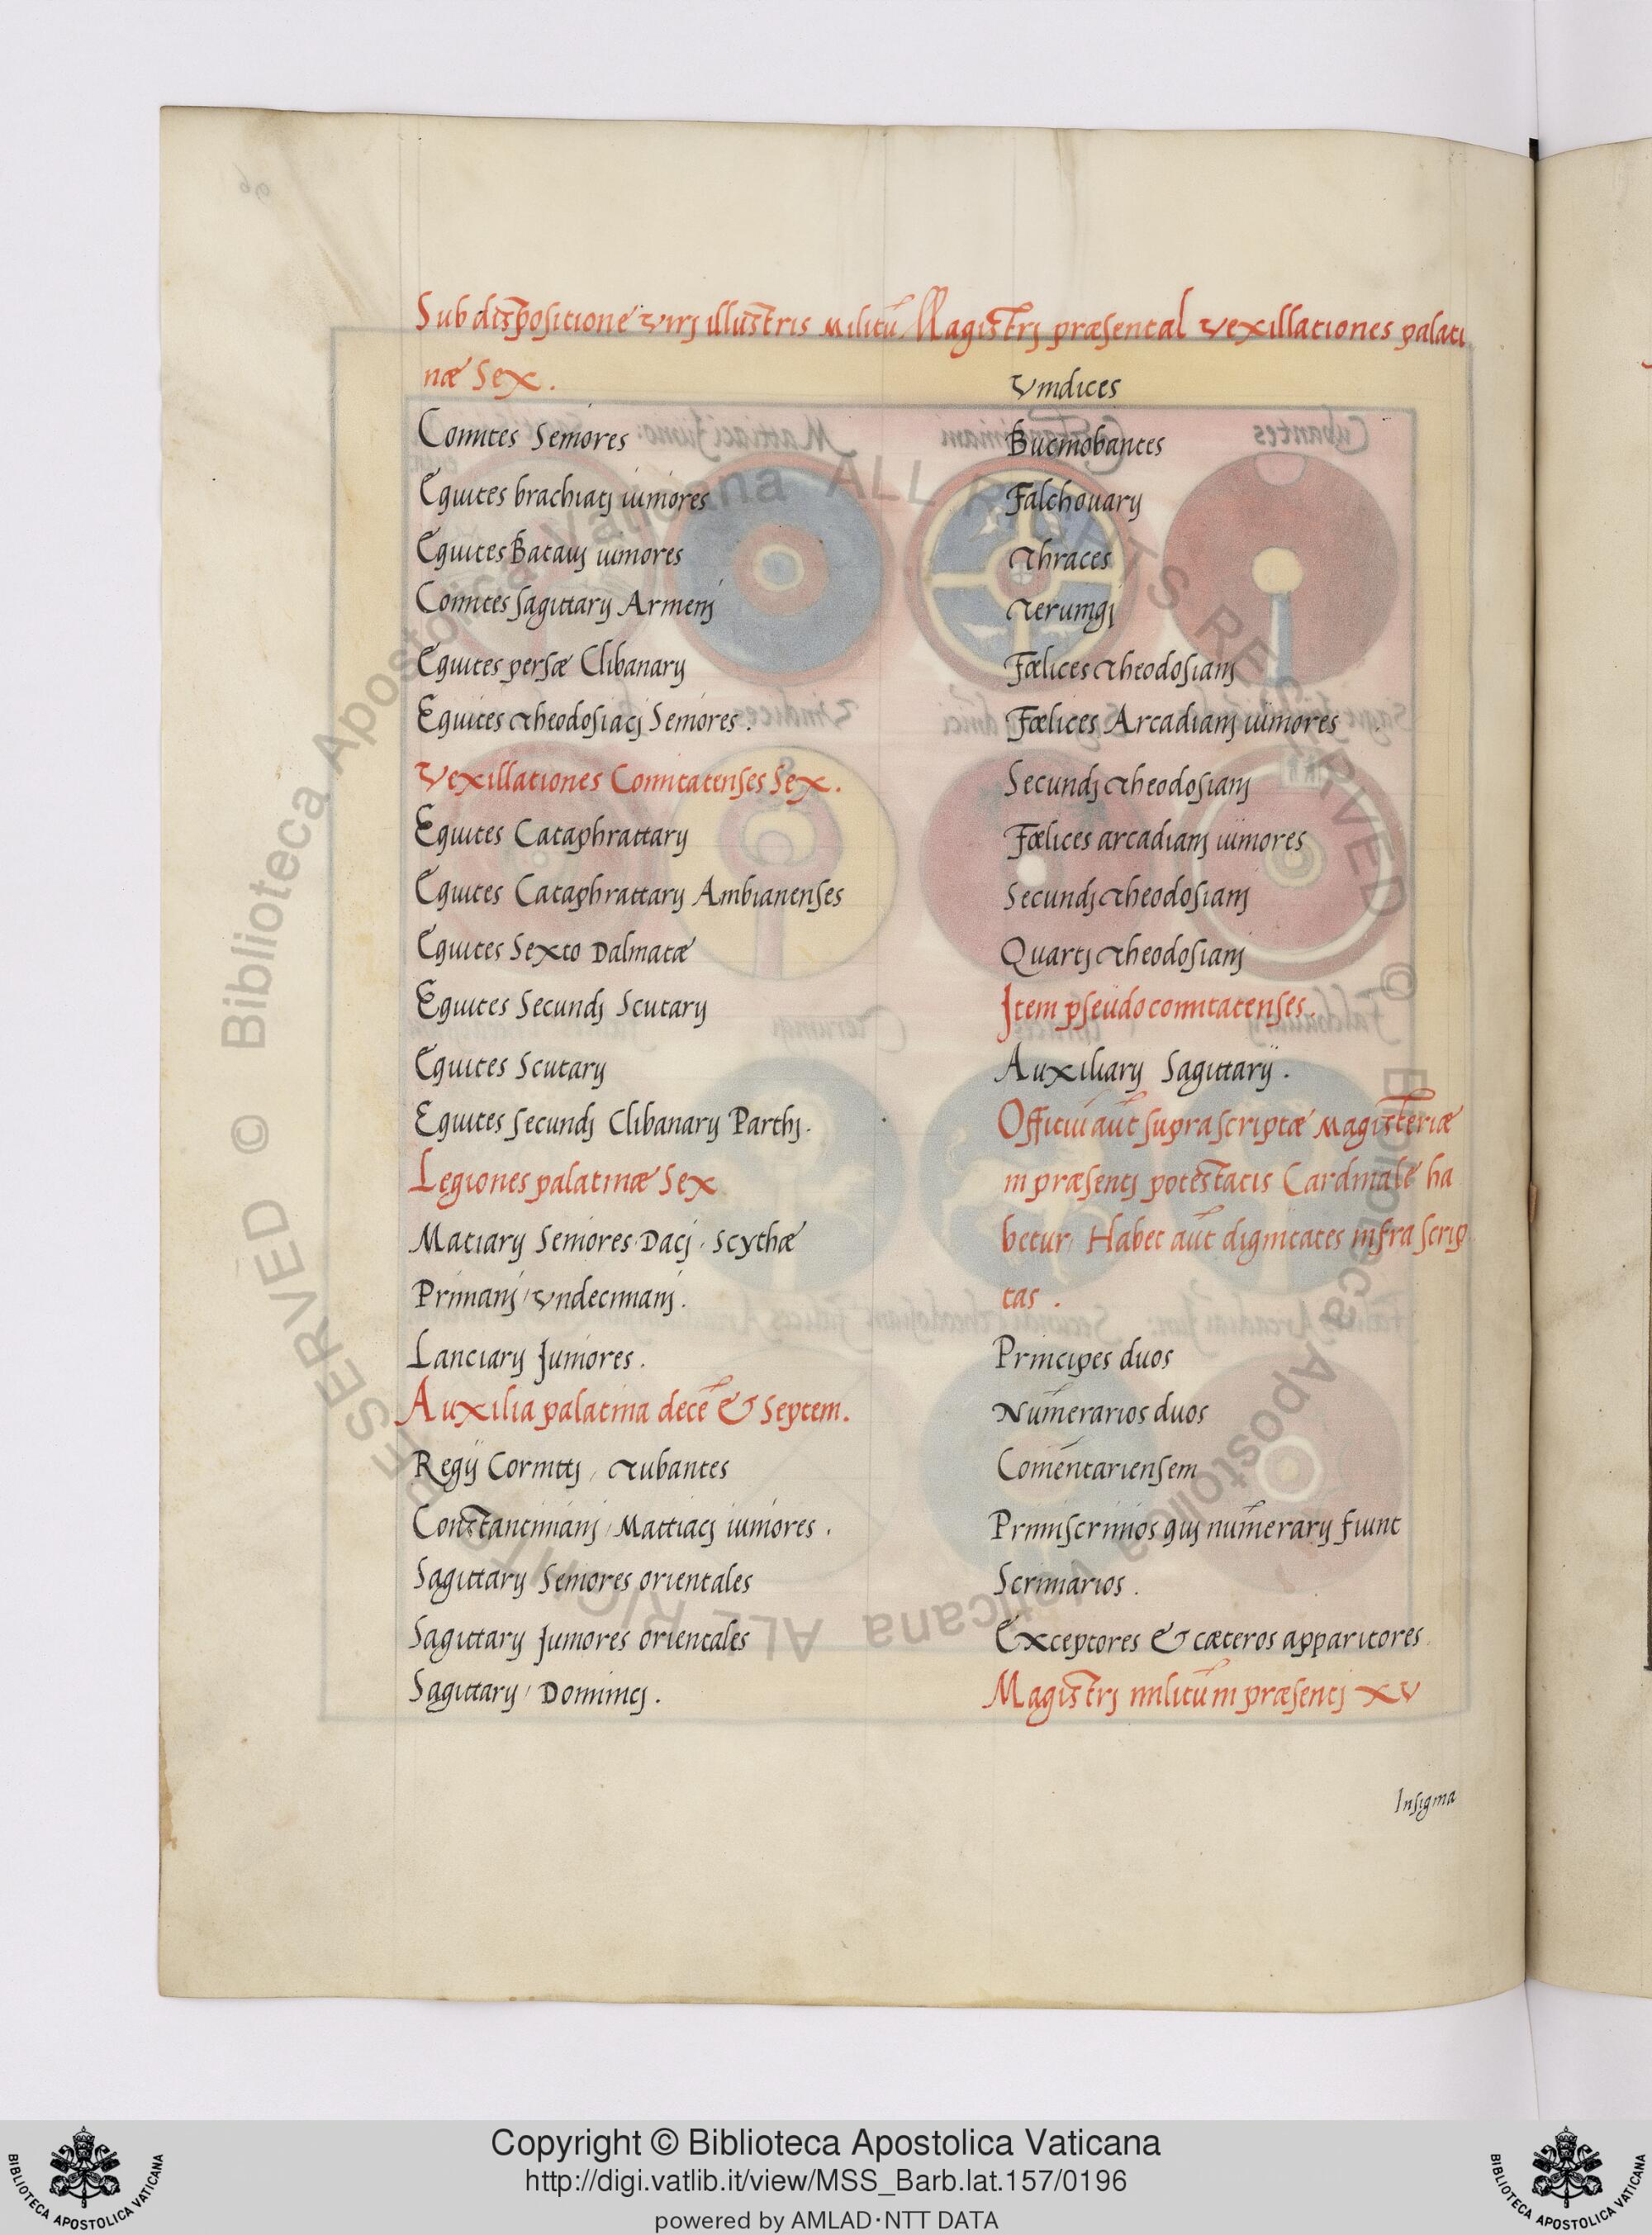 Sub dispositione virj illustris militū Magistrj præsental vexillationes palati
næ Sex.
Comites Seniores
Equites brachiatj iuniores
Equites Batauj iuniores
Comites sagittarij Armenj
Equites persæ Clibanarij
Equites Theodosiacj Seniores.
Vexillationes Comitatenses Sex.
Equites Cataphrattarij
Equites Cataphrattarij Ambianenses
Equites Sexto Dalmatæ
Equites Secundj Scutarij
Equites Scutarij
Equites secundj Clibanarij Parthj.
Legiones palatinæ Sex
Matiarij Seniores Dacj, Scythæ
Primanj, Vndecimanj.
Lanciarij Juniores.
Auxilia palatina decē & Septem.
Regij Cornuti, Tubantes
Constantinianj, Mattiacj iuniores.
Sagittarij Seniores orientales
Sagittarij Juniores orientales
Sagittarij, Dominicj.
Vindices
Bucinobantes
Falchouarij
Thraces
Teruingj
Fœlices Theodosianj
Fœlices Arcadianj iuniores
Secundj Theodosianj
Fœlices arcadianj iuniores
Secundj Theodosianj
Quartj Theodosianj
Item pseudocomitatenses.
Auxiliarij Sagittarij.
Officiū aūt suprascriptæ Magisteriæ
in præsentj potestatis Cardinalē ha
betur, Habet aūt dignitates infra scrip
tas.
Principes duos
Nūmerarios duos
Comēntariensem
Primiscrinios quj nūmerarij fiunt
Scriniarios.
Exceptores & cæteros apparitores.
Magistrj militūm præsentj XV
Insignia
© Biblioteca Apostolica Vaticana ALL RIGHTS RESERVED © Biblioteca Apostolica Vaticana ALL RIGHTS RESERVED
Copyright © Biblioteca Apostolica Vaticana
http://digi.vatlib.it/view/MSS_Barb.lat.157/0196
powered by AMLAD·NTT DATA
BIBLIOTECA APOSTOLICA VATICANA
BIBLIOTECA APOSTOLICA VATICANA